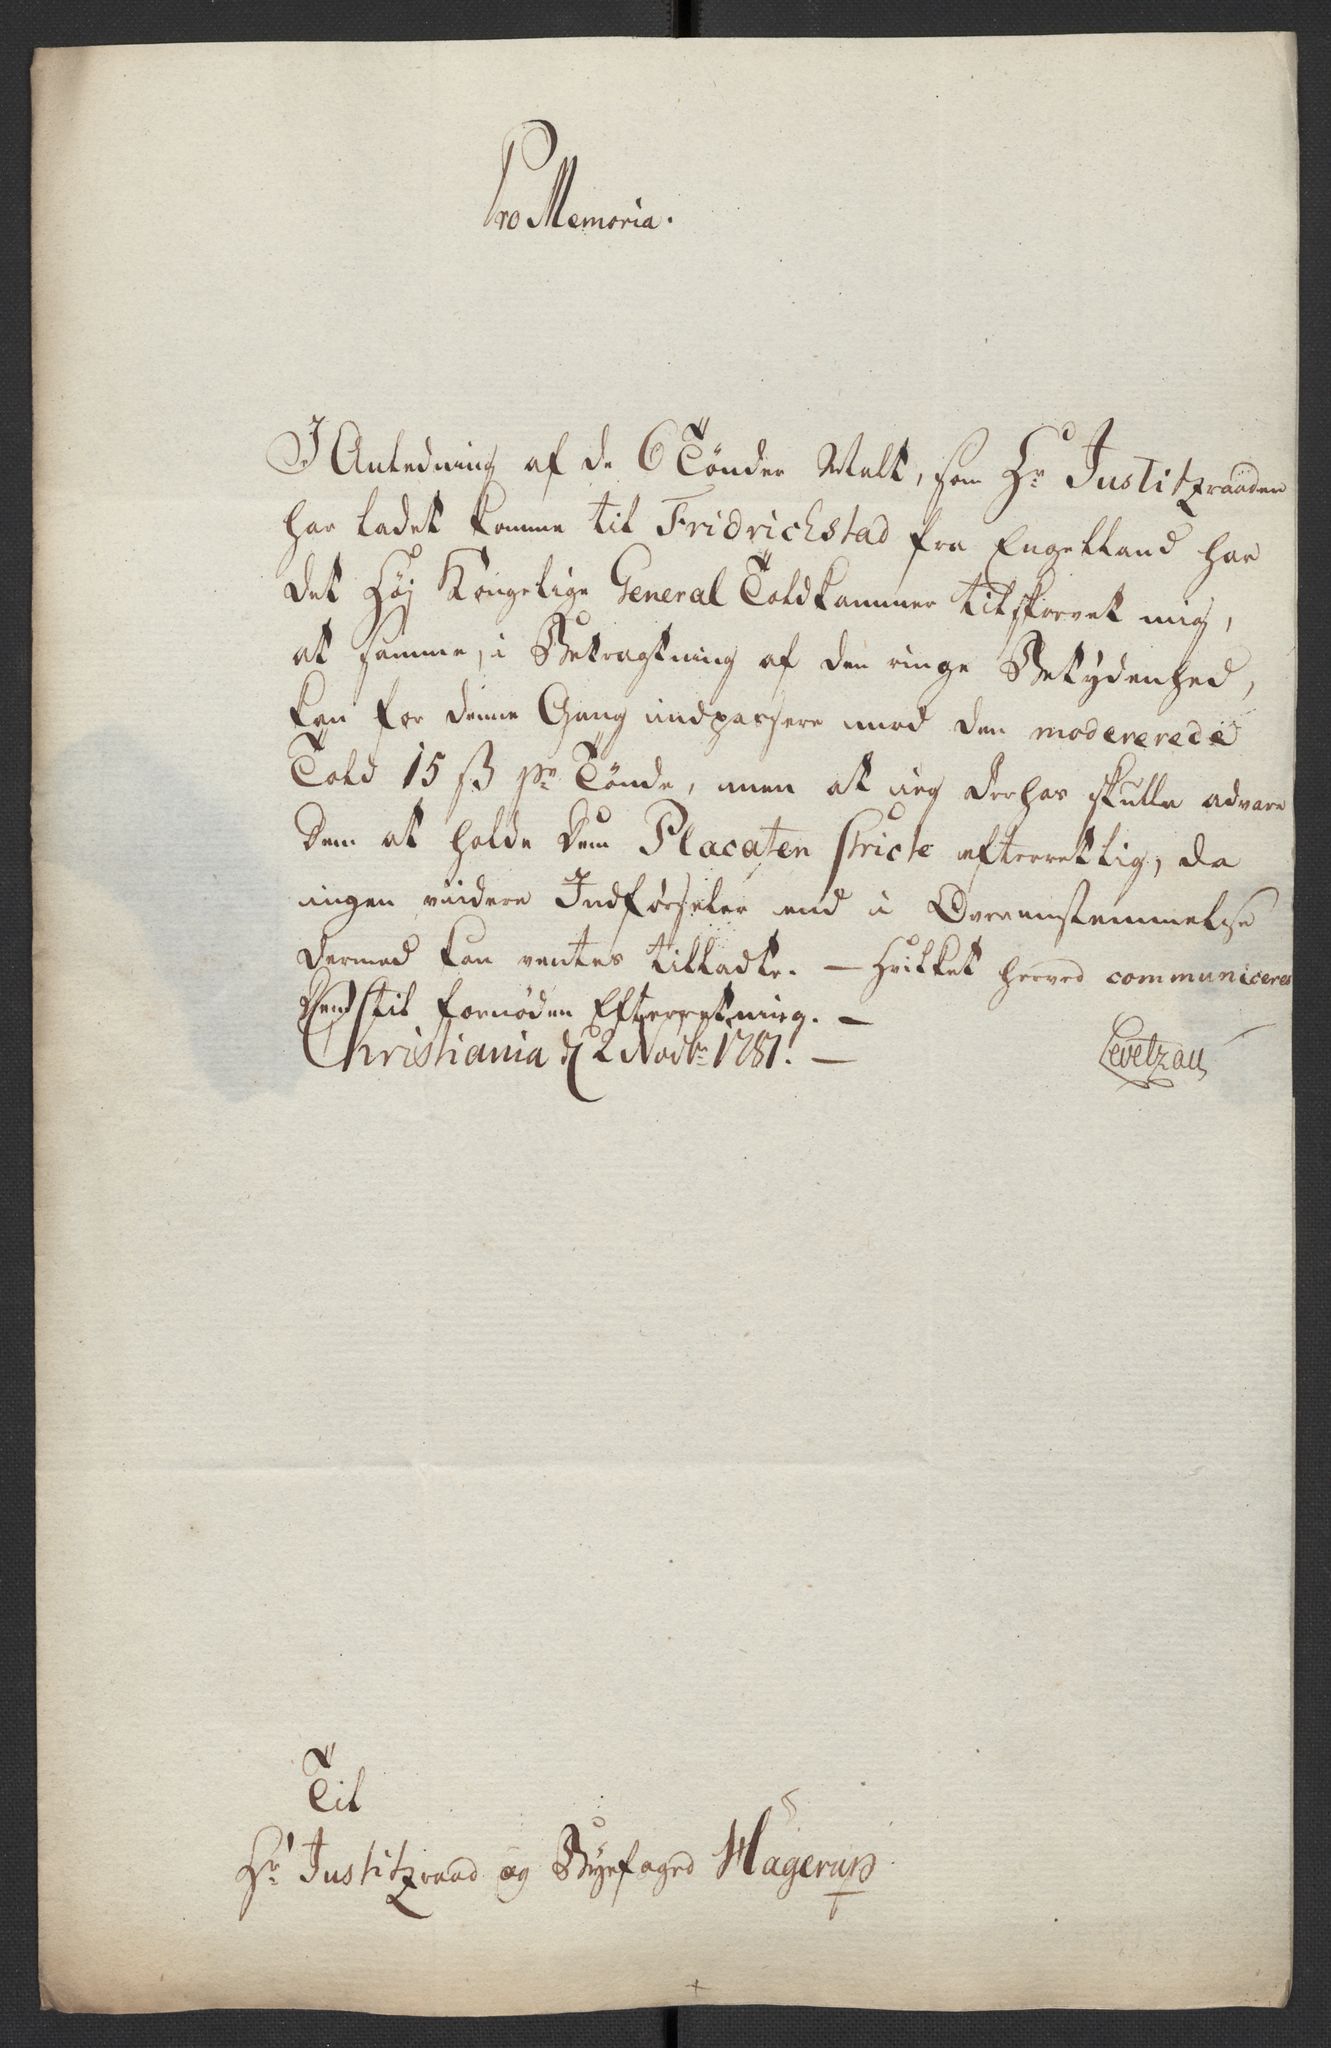 Pro Memoria.
I Anledning af de 6 Tønder Malt, som Hr Justitzraaden
har ladet komme til Fridrichstad fra Engelland har
det Høj Kongelige General Toldkammer tilskrevet mig,
at samme, i Betragtning af den ringe Betydenhed,
kan for denne Gang indpassere imod den modererede
Told 15 ß pr Tønde, men at jeg derhos skulle advare
Dem at holde dem Placaten stricte efterrettlig, da
ingen viidere Indførseler end i Overeenstemmelse
dermed kan ventes tilladte. — Hvilket herved communiceres
Dem til fornøden Efterretning. —
Christiania d 2 Novbr 1787. —
Levetzau
Til
Hr Justitzraad og Byefoged Hagerup